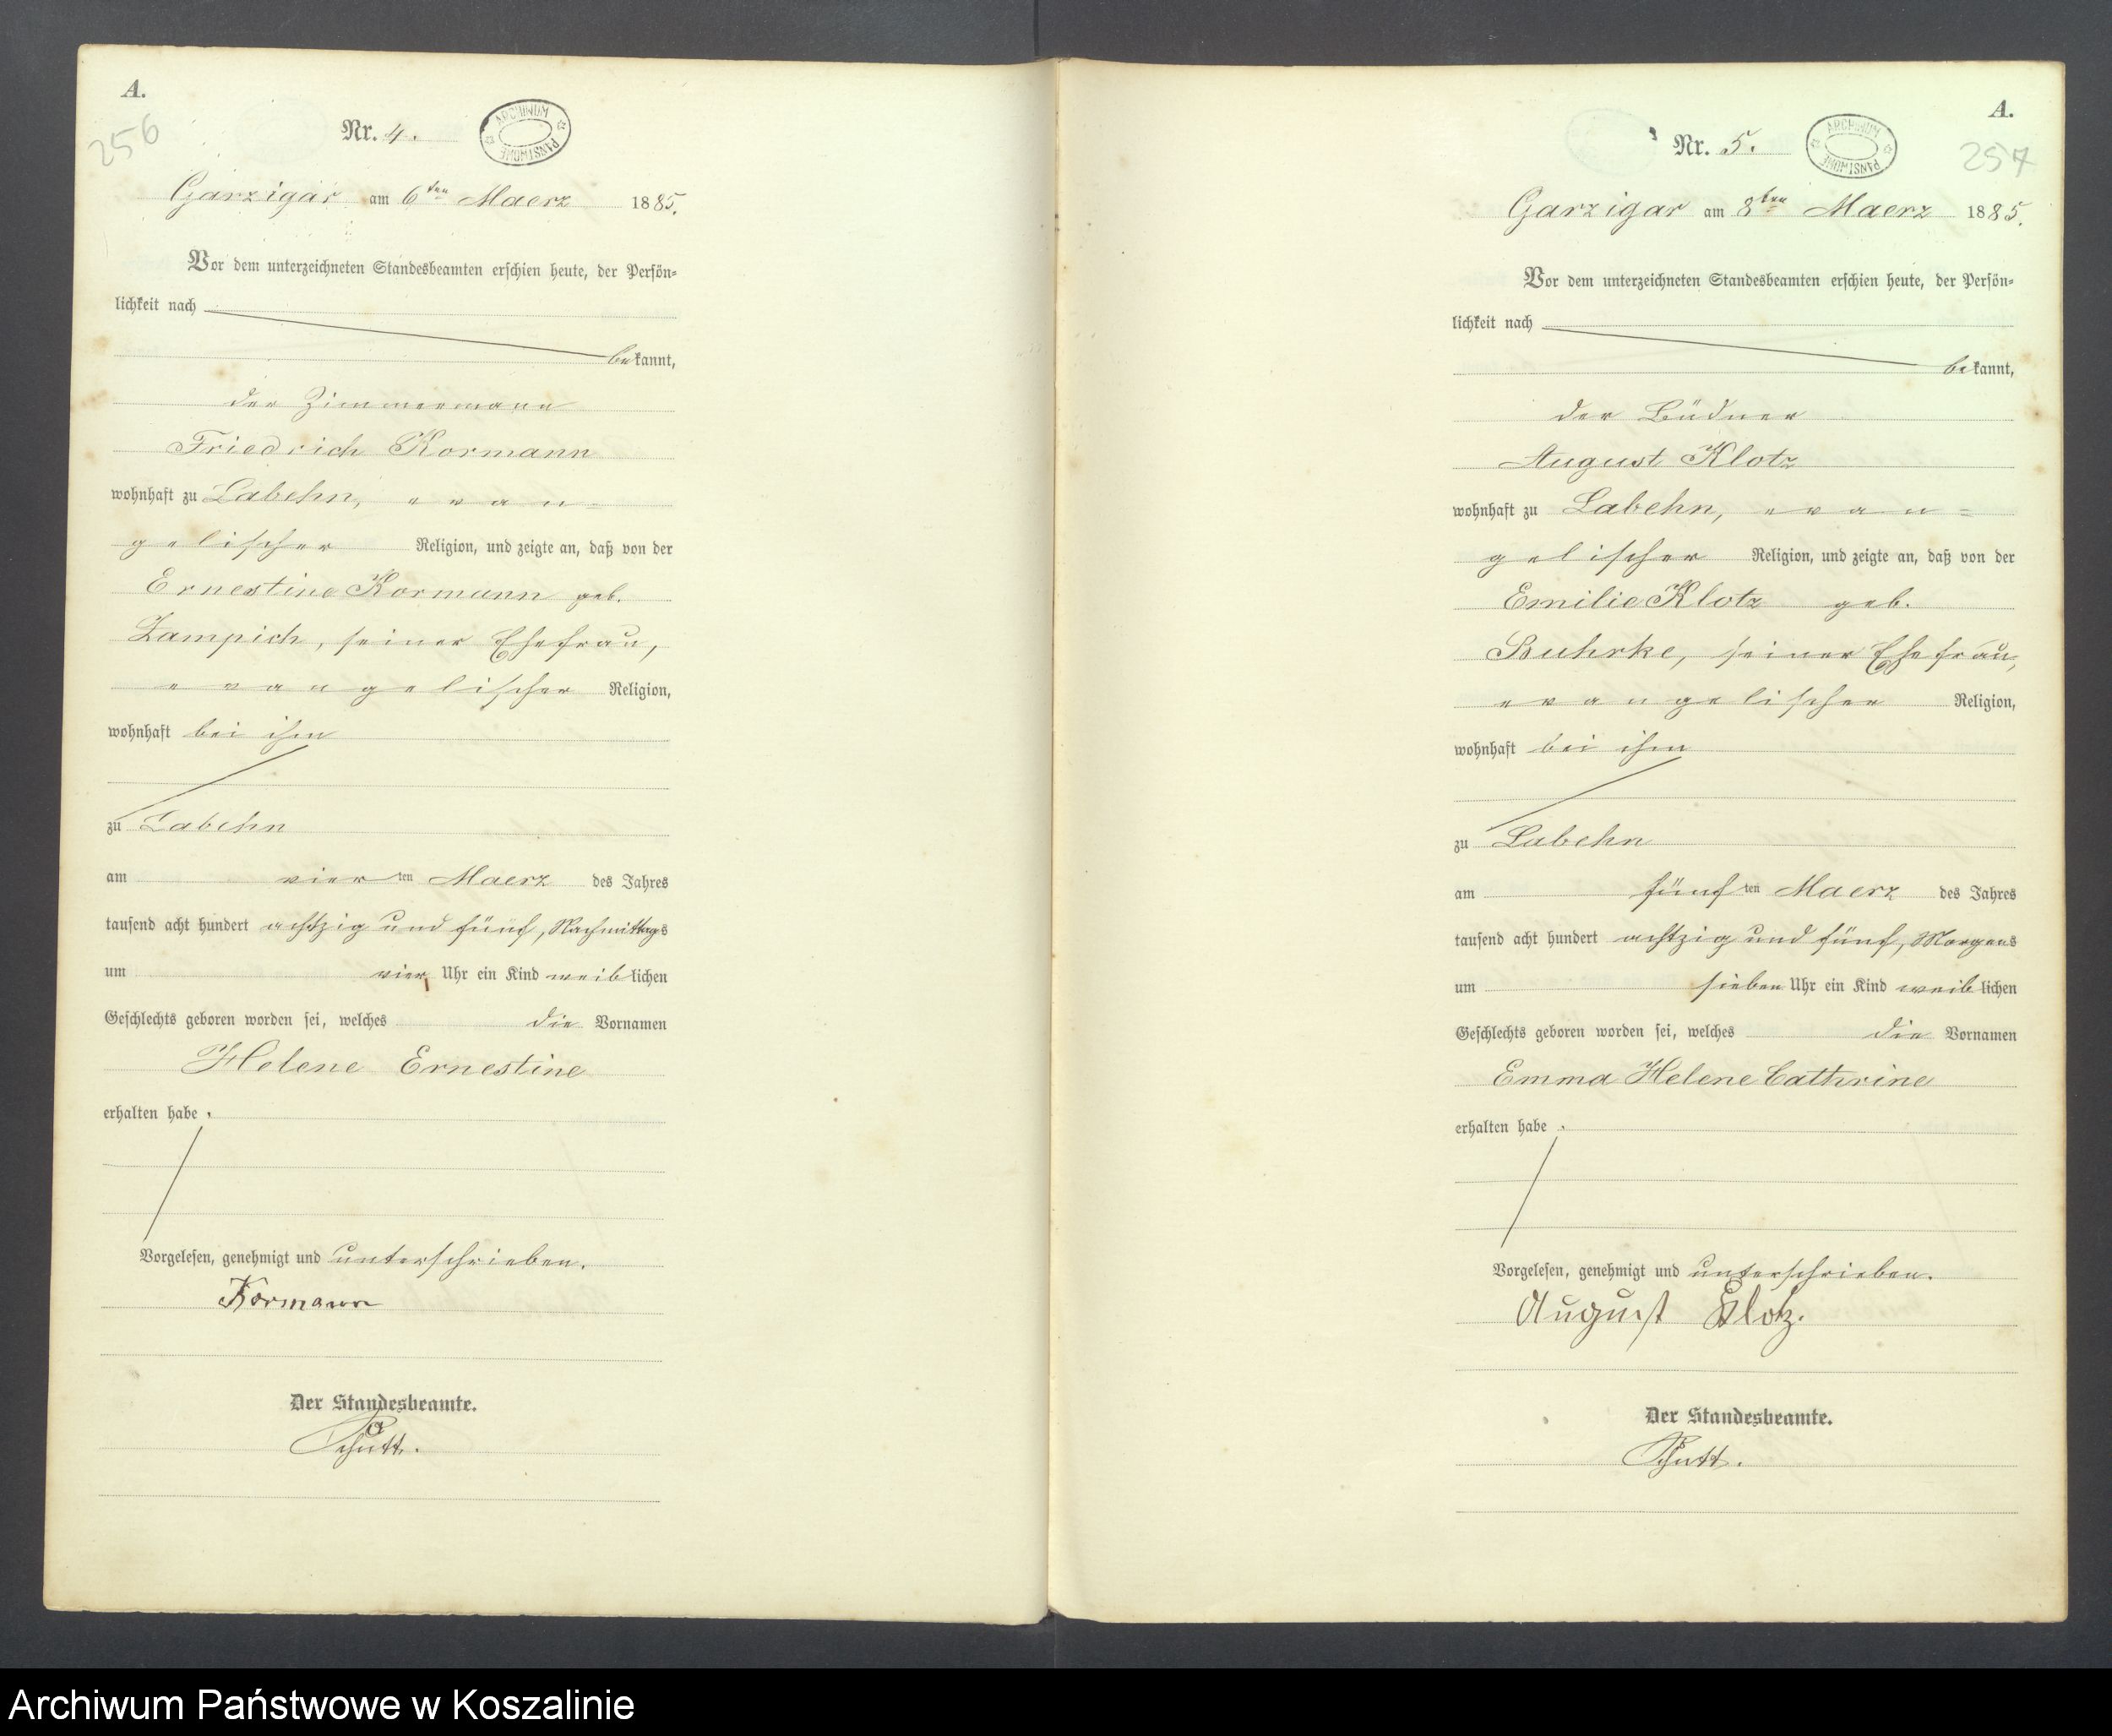 A.
256
Nr. 4.
ARCHIWUM PAŃSTWOWE
Garzigar am 6ten Maerz 1885.
Vor dem unterzeichneten Standesbeamten erschien heute, der Persön-
lichkeit nach
bekannt,
der Zimmermann
Friedrich Kormann
wohnhaft zu Labehn, evan-
gelischer Religion, und zeigte an, daß von der
Ernestine Kormann geb.
Lampich, seiner Ehefrau,
evangelischer Religion,
wohnhaft bei ihm
zu Labehn
am vierten Maerz des Jahres
tausend acht hundert achtzig und fünf, Nachmittags
um vier Uhr ein Kind weiblichen
Geschlechts geboren worden sei, welches die Vornamen
Helene Ernestine
erhalten habe.
Vorgelesen, genehmigt und unterschrieben.
Kormann
Der Standesbeamte.
Schutt.
A.
257
Nr. 5.
ARCHIWUM PAŃSTWOWE
Garzigar am 8ten Maerz 1885.
Vor dem unterzeichneten Standesbeamten erschien heute, der Persön-
lichkeit nach
bekannt,
der Büdner
August Klotz
wohnhaft zu Labehn, evan=
gelischer Religion, und zeigte an, daß von der
Emilie Klotz geb.
Buhrke, seiner Ehefrau,
evangelischer Religion,
wohnhaft bei ihm
zu Labehn
am fünften Maerz des Jahres
tausend acht hundert achtzig und fünf, Morgens
um sieben Uhr ein Kind weiblichen
Geschlechts geboren worden sei, welches die Vornamen
Emma Helene Cathrine
erhalten habe.
Vorgelesen, genehmigt und unterschrieben.
August Klotz.
Der Standesbeamte.
Schutt.
Archiwum Państwowe w Koszalinie